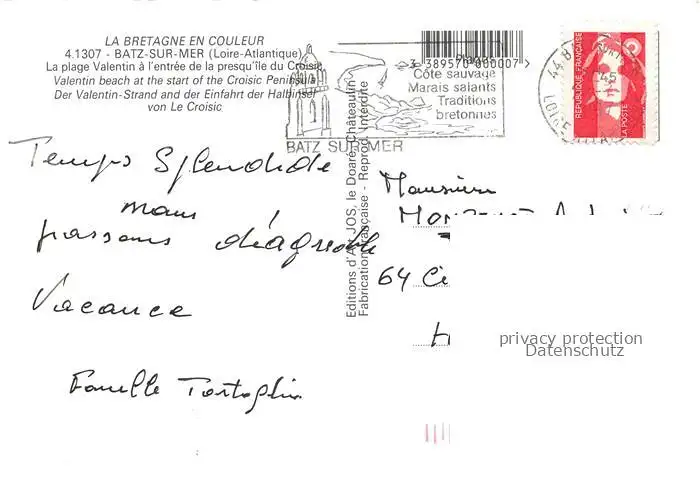 LA BRETAGNE EN COULEUR
4.1307 - BATZ-SUR-MER (Loire-Atlantique)
La plage Valentin à l'entrée de la presqu'île du Croisic
Valentin beach at the start of the Croisic Peninsula
Der Valentin-Strand and der Einfahrt der Halbinsel
von Le Croisic
3 389570 000007 >
Côte sauvage
Marais salants
Traditions
bretonnes
BATZ SUR MER
44 B
LOIRE
REPUBLIQUE FRANÇAISE
LA POSTE
Editions d'Art JOS, le Doaré, Châteaulin
Fabrication Française - Reprod. Interdite
Temps Splendide
nous
passons d'agréable
Vacance
Famille Tartaglia
Monsieur
64
privacy protection
Datenschutz